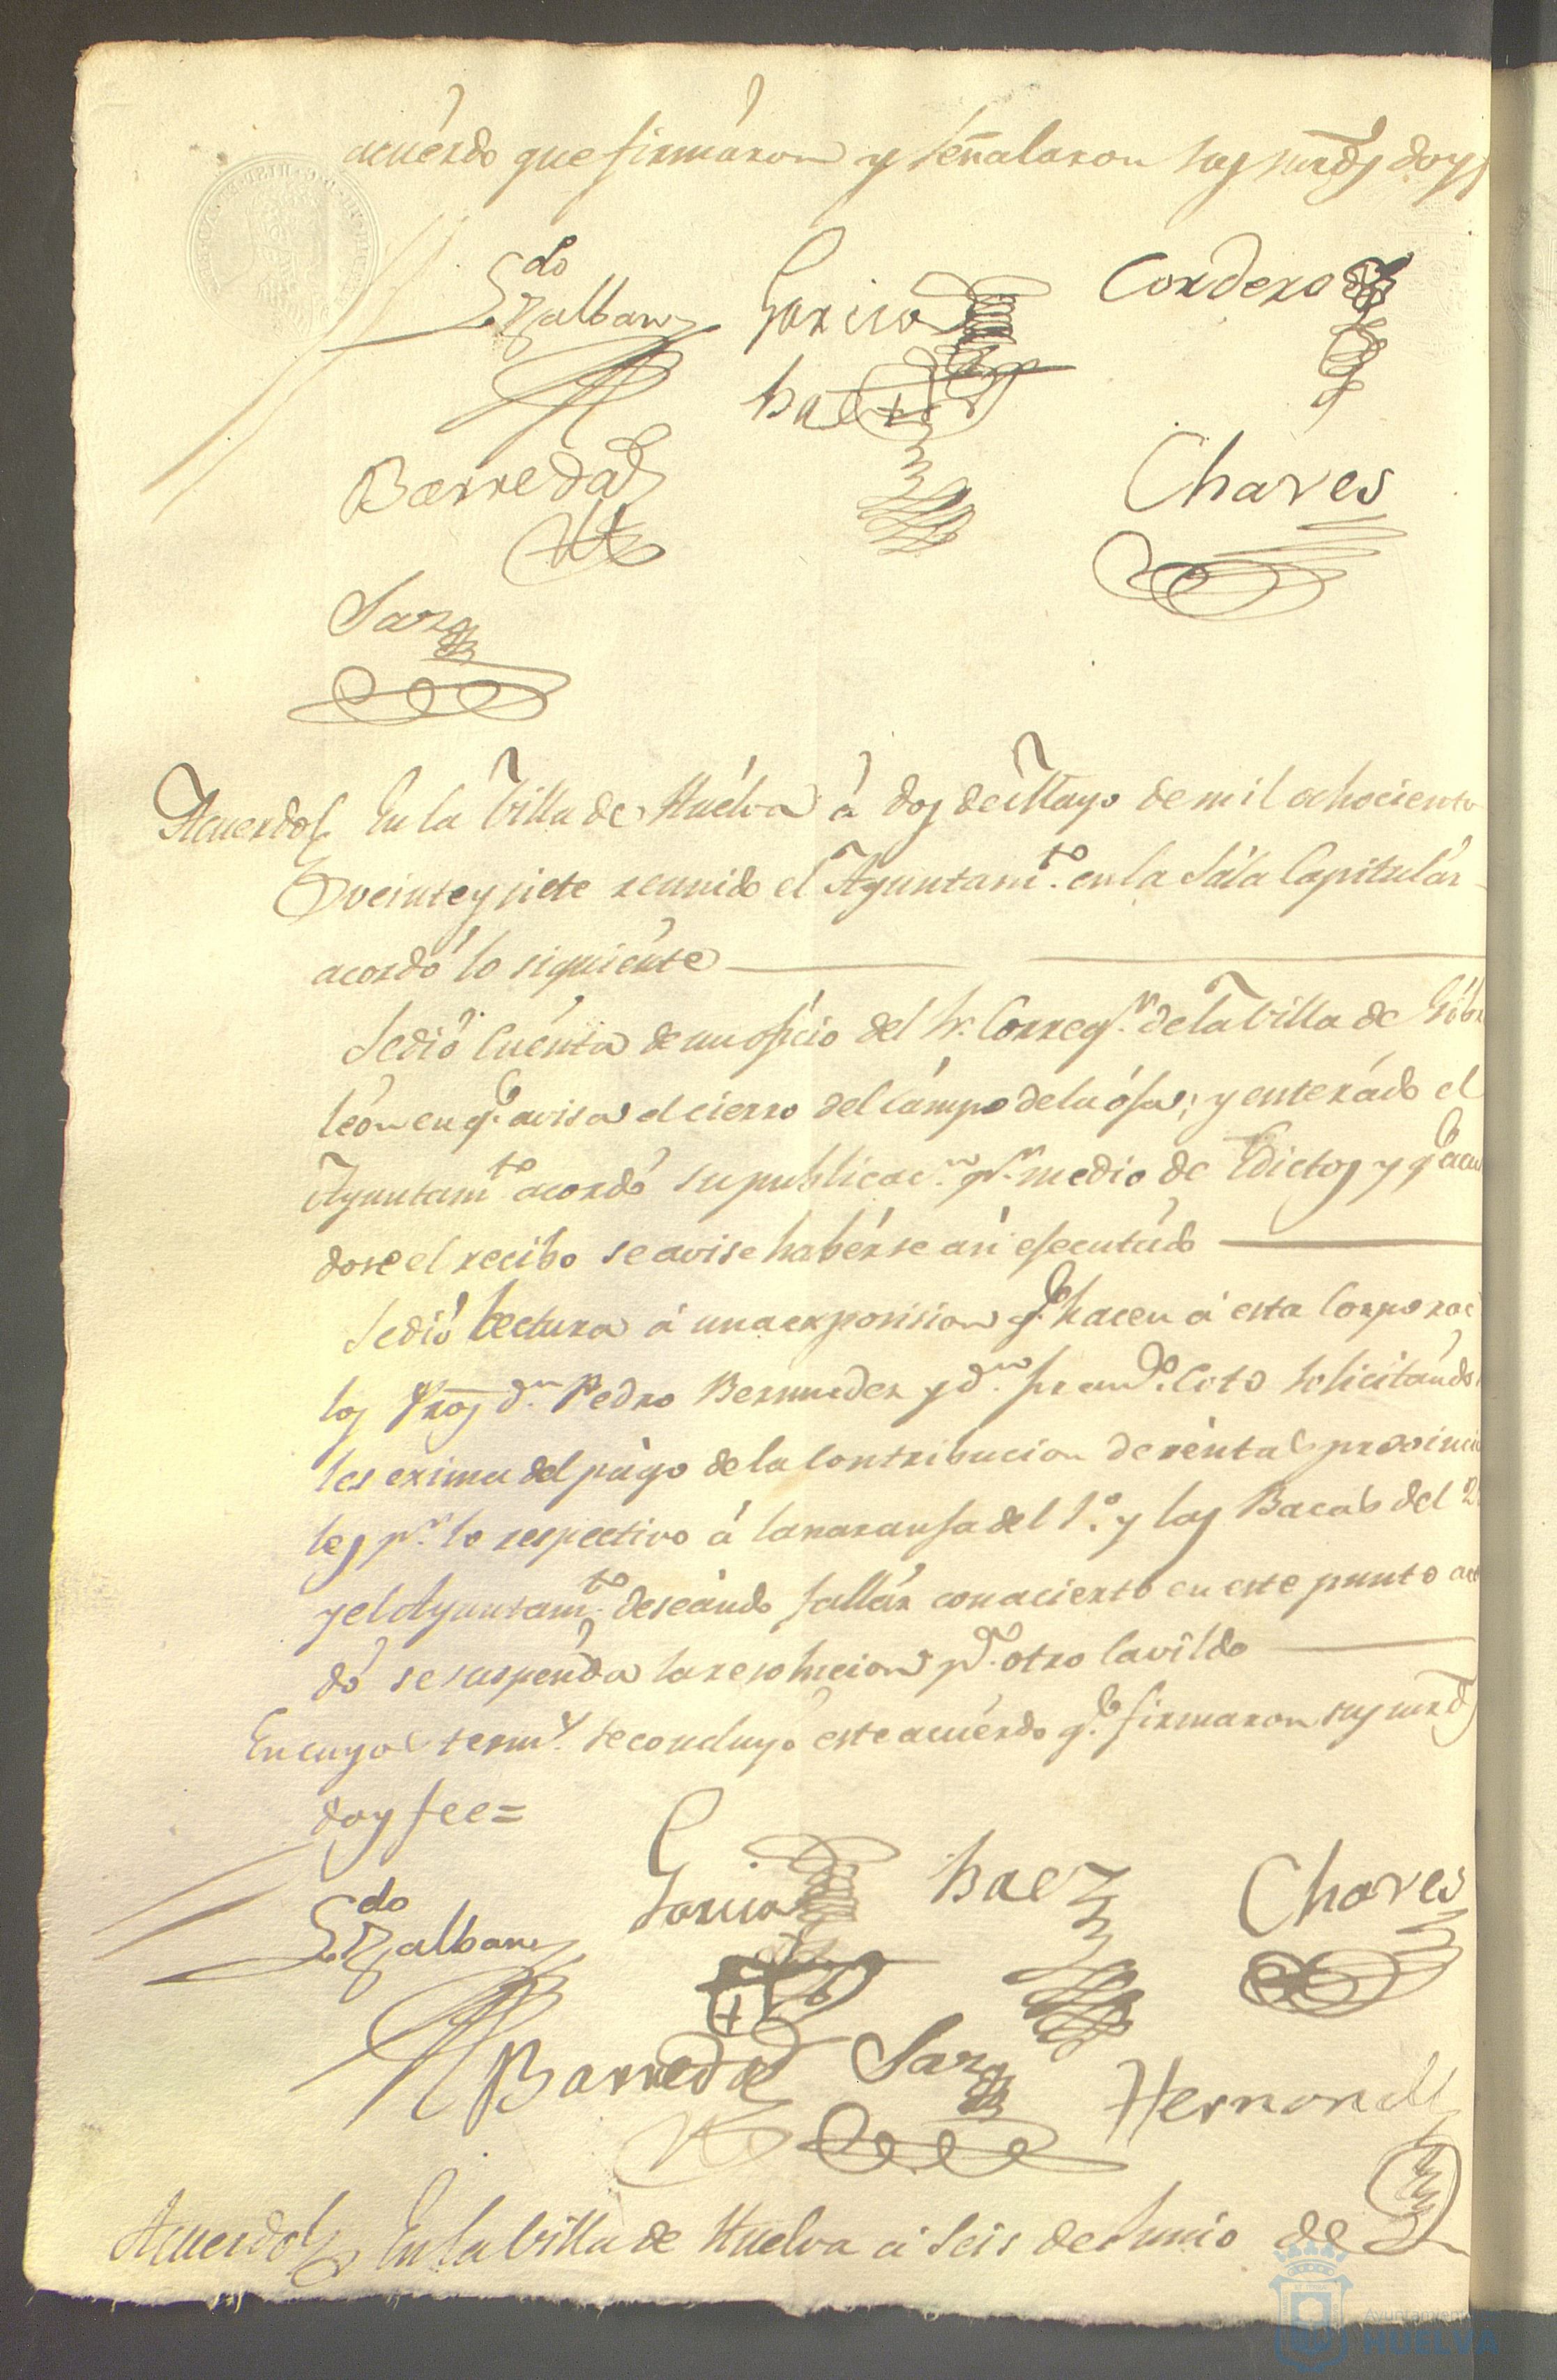 acuérdo que firmáron y señalaron sus mrds doy f
Ldo
Zalbany Garcia Cordero
Baez
Barreda Chaves
Sanz
Acuerdo En la Villa de Huélva á dos de Mayo de mil ochociento
veinte y siete reunido el Ayuntamto. en la Sála Capitulár
acordó lo siguiénte
Se dió Cuénta de un oficio del Sr. Corregr. de la Villa de Gibra
león en qe. avisa el cierro del Cámpo de la ósa; y enterádo el
Ayuntamto. acordó su publicacn. pr. medio de Edictos y qe. acu
dose el recibo se avise habérse así efecutádo
Se dió lectura á una exposision qe. hacen á esta Corporac
los Pros. dn. Pedro Bermudez y dn. Francо. Coto solicitándo
les exima del págo de la Contribucion de réntas provincia
les pr. lo respectivo á la naranfa del 1º. y las Bacas del 2
y el Ayuntamto. deseándo fallár con acierto en este punto acor
dó se suspénda la resolucion pa. otro Cavildo
En cuyos terms. se concluyó este acuérdo qe. firmaron sus mrds
doy fee=
Ldo
Zalbany Garcia Baez Chaves
Barreda Sanz Hernandz
Acuerdo En la Villa de Huelva á Seis de Junio de
Ayuntamiento
HUELVA